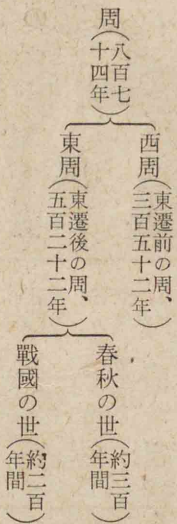 周(八百七十四年)
西周(東遷前の周、三百五十二年)
東周(東遷後の周、五百二十二年)
春秋の世(約三百年間)
戰國の世(約二百年間)